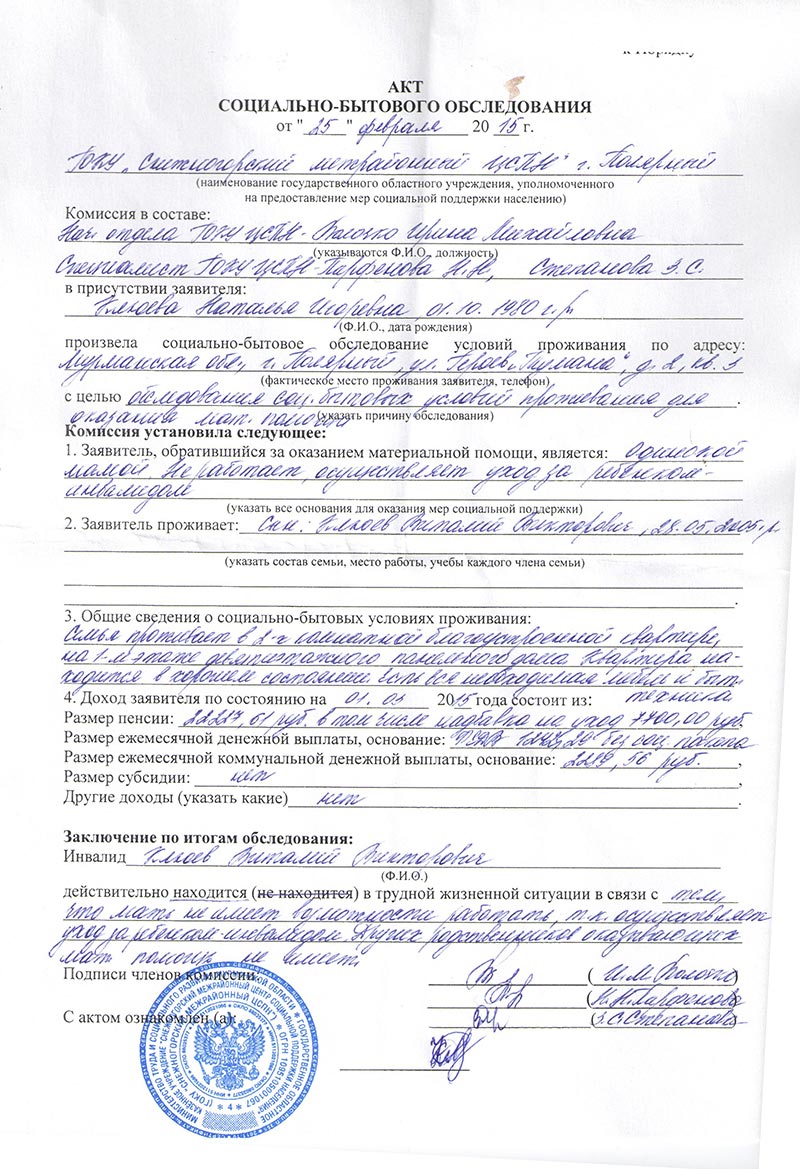 к Порядку
АКТ
СОЦИАЛЬНО-БЫТОВОГО ОБСЛЕДОВАНИЯ
от "25" февраля 2015 г.
ГОКУ „Снежногорский межрайонный ЦСПН" г. Полярный
(наименование государственного областного учреждения, уполномоченного
на предоставление мер социальной поддержки населению)
Комиссия в составе:
Нач. отдела ГОКУ ЦСПН - Ирина Михайловна
(указываются Ф.И.О., должность)
Специалист ГОКУ ЦСПН - Парфенова Н.Н., Степанова З.С.
в присутствии заявителя:
Клюева Наталья Игоревна, 01.10.1980 г.р.
(Ф.И.О., дата рождения)
произвела социально-бытовое обследование условий проживания по адресу:
Мурманская обл., г. Полярный, ул. Героев „Тумана", д. 2, кв. 3
(фактическое место проживания заявителя, телефон)
с целью обследования соц.бытовых условий проживания для
оказания мат. помощи
(указать причину обследования)
Комиссия установила следующее:
1. Заявитель, обратившийся за оказанием материальной помощи, является: Одинокой
мамой. Не работает, осуществляет уход за ребенком-
инвалидом
(указать все основания для оказания мер социальной поддержки)
2. Заявитель проживает: сын: Клюев Виталий Викторович, 28.05.2005 г.р
(указать состав семьи, место работы, учебы каждого члена семьи)
3. Общие сведения о социально-бытовых условиях проживания:
Семья проживает в 2-х комнатной благоустроенной квартире,
на 1-м этаже девятиэтажного панельного дома. Квартира на-
ходится в хорошем состоянии. Есть вся необходимая мебель и быт.
техника
4. Доход заявителя по состоянию на 01.03 2015 года состоит из:
Размер пенсии: руб. в том числе надбавка на уход руб.
Размер ежемесячной денежной выплаты, основание: без соц. пакета
Размер ежемесячной коммунальной денежной выплаты, основание: 2229,56 руб.,
Размер субсидии: нет
Другие доходы (указать какие) нет.
Заключение по итогам обследования:
Инвалид Клюев Виталий Викторович
(Ф.И.О.)
действительно находится (не находится) в трудной жизненной ситуации в связи с тем,
что мать не имеет возможности работать, т.к. осуществляет
уход за ребенком-инвалидом. Других родственников оказывающих
мат помощь не имеет.
Подписи членов комиссии:
(И.М. )
(Н.Н. Парфенова)
С актом ознакомлен (а):
(З.С. Степанова)